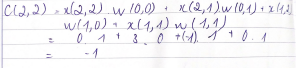 C(2,2) = x(2,2). w(0,0) + x(2,1) w(0,1) + x(1,2)
w(1,0) + x(1,1) w(1,1)
= 0.1 + 3.0 +(-1).1 + 0.1
= -1